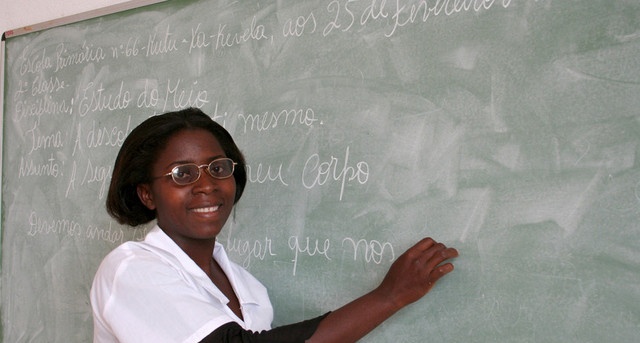 Escola Primária nº 66-Kutu-Ka-Kevela, aos 25 de Fevereiro
2ª Classe-
Disciplina: Estudo do Meio
Tema: A mesmo.
Assunto: A Corpo
Devemos andar lugar que nos